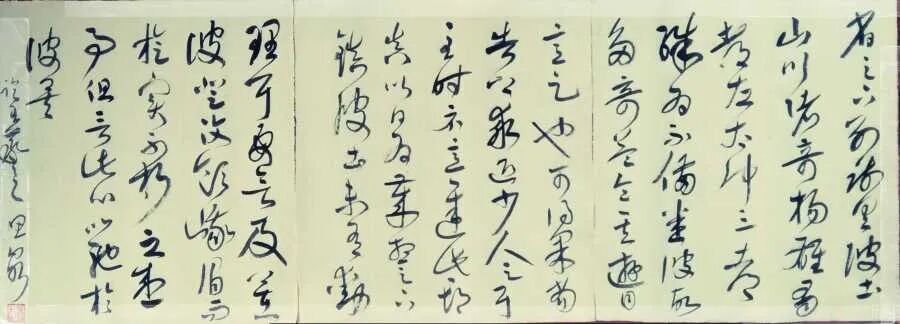 省足下別疏具彼土
山川諸奇揚雄蜀
都左太沖三都
殊為不備悉彼故
多奇益令其遊目
意足也可得果當
告卿求迎少人足耳
至時示意遲此期
真以日為歲想足下
鎮彼土未有動
理耳要欲及卿在
彼登汶領峨眉而
旋實不朽之盛
事但言此心以馳於
彼矣
臨王羲之